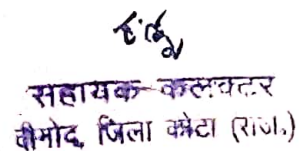 सहायक कलक्टर
दीगोद, जिला कोटा (राज.)